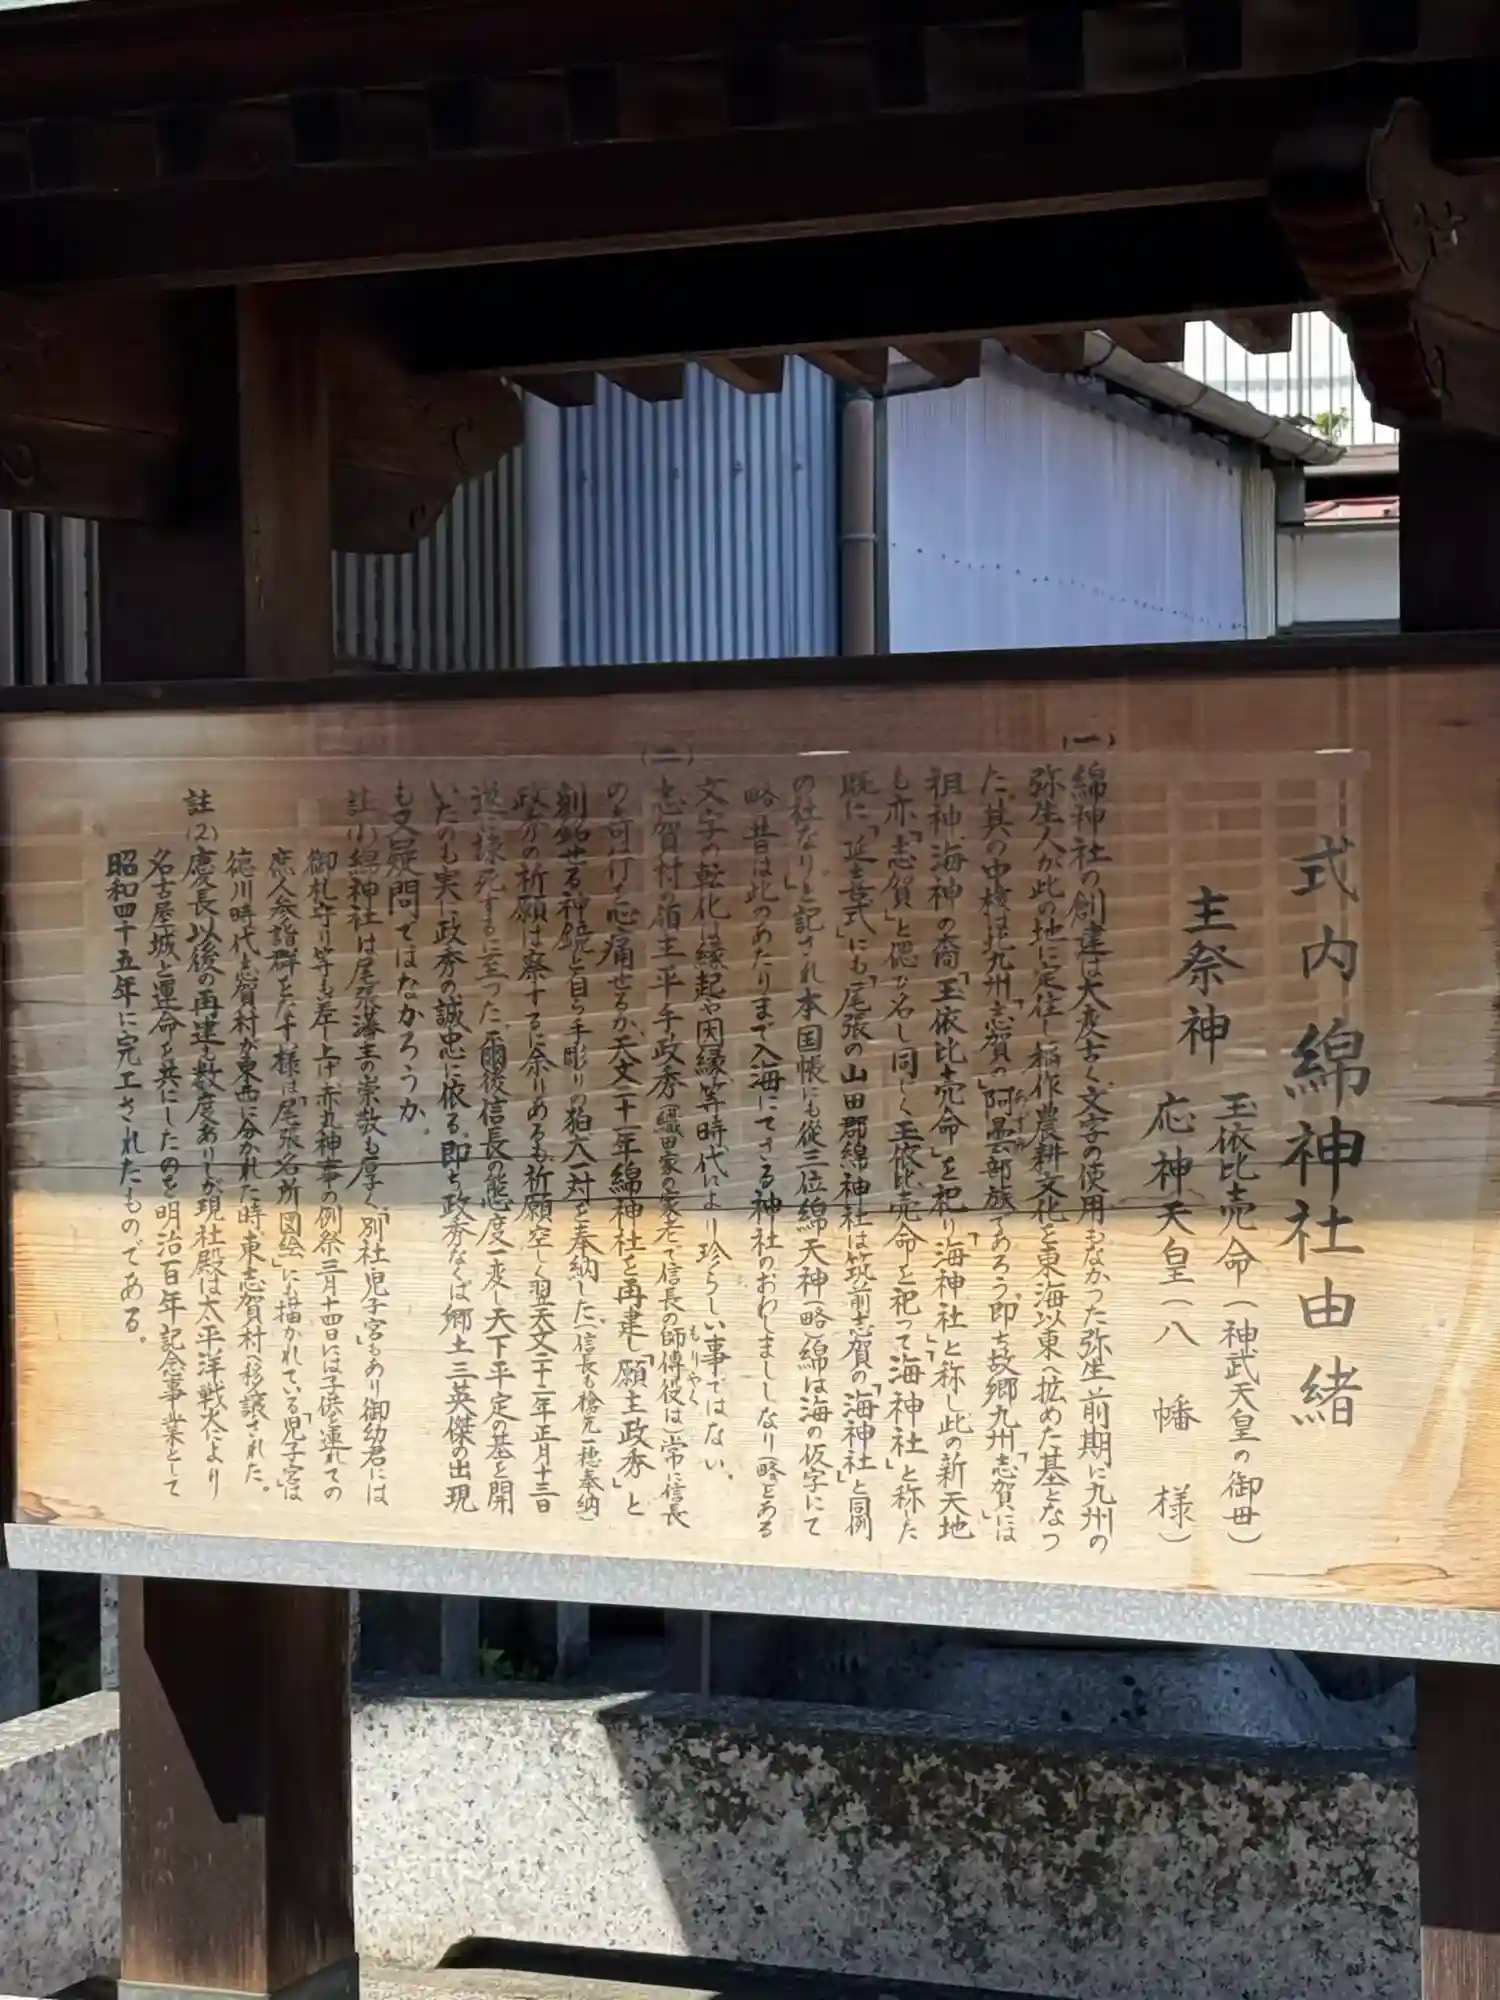 式内綿神社由緒
主祭神
玉依比売命(神武天皇の御母)
応神天皇(八幡様)
(一)
綿神社の創建は大変古く、文字の使用もなかった弥生前期に九州の
弥生人が此の地に定住し稲作農耕文化を東海以東へ拡めた基となっ
た。其の中核は北九州「志賀の」阿曇部族であろう。即ち故郷九州「志賀」には
あずみ
祖神、海神の裔「玉依比売命」を祀り「海神社」と称し此の新天地
も亦「志賀」と偲び名し同じく玉依比売命を祀って「海神社」と称した
既に「延喜式」にも「尾張の山田郡綿神社は筑前志賀の「海神社」と同例
の社なり」と記され本国帳にも従三位綿天神(略)綿は海の仮字にて
略昔は此のあたりまで入海にてさる神社のおわしまししなり(略)とある
文字の転化は縁起や因縁等時代により珍らしい事ではない。
(二)
志賀村の領主平手政秀(織田家の家老で信長の師傅役は)常に信長
もりやく
の奇行を心痛せるか、天文二十一年綿神社を再建し「願主政秀」と
刻銘せる神鏡と自ら手彫りの狛犬一対を奉納した。(信長も槍先一穂奉納)
政秀の祈願は察するに余りあるも、祈願空しく翌天文二十二年正月十三日
遂に諫死するに至った。爾後信長の態度一変し天下平定の基を開
いたのも実に政秀の誠忠に依る。即ち政秀なくば郷土三英傑の出現
も又疑問ではなかろうか。
註(1)綿神社は尾張藩主の崇敬も厚く、別社「児子宮」もあり御幼君には
御札守り等も差し上げ赤丸神事の例祭三月十四日には子供を連れての
庶人参詣群をなす様は「尾張名所図絵」にも描かれている。「児子宮」は
徳川時代志賀村が東西に分かれた時、東志賀村へ移譲された。
註(2)慶長以後の再建も数度ありしが現社殿は太平洋戦火により
名古屋城と運命を共にしたのを明治百年記念事業として
昭和四十五年に完工されたものである。